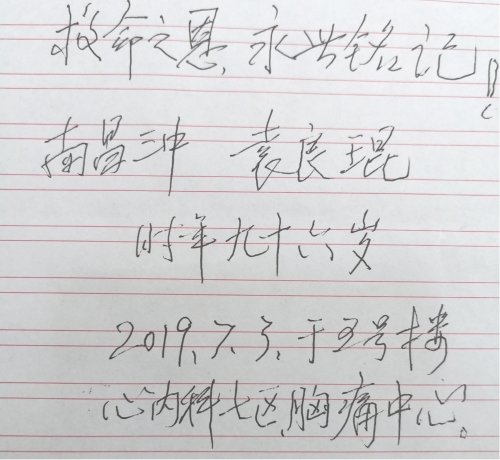 救命之恩,永世铭记!
南昌三中 袁良琨
时年九十六岁
2019.7.3.于五号楼
心内科七区,胸痛中心。